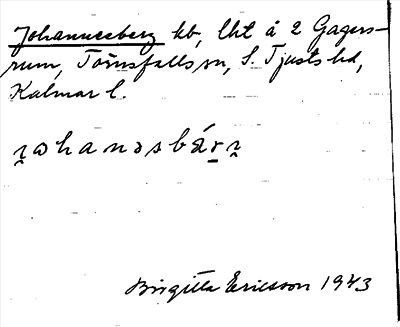 Johannesberg kb, lht å 2 Gagers-
rum, Törnsfalls sn, S. Tjusts hd,
Kalmar l.
Birgitta Ericsson 1943